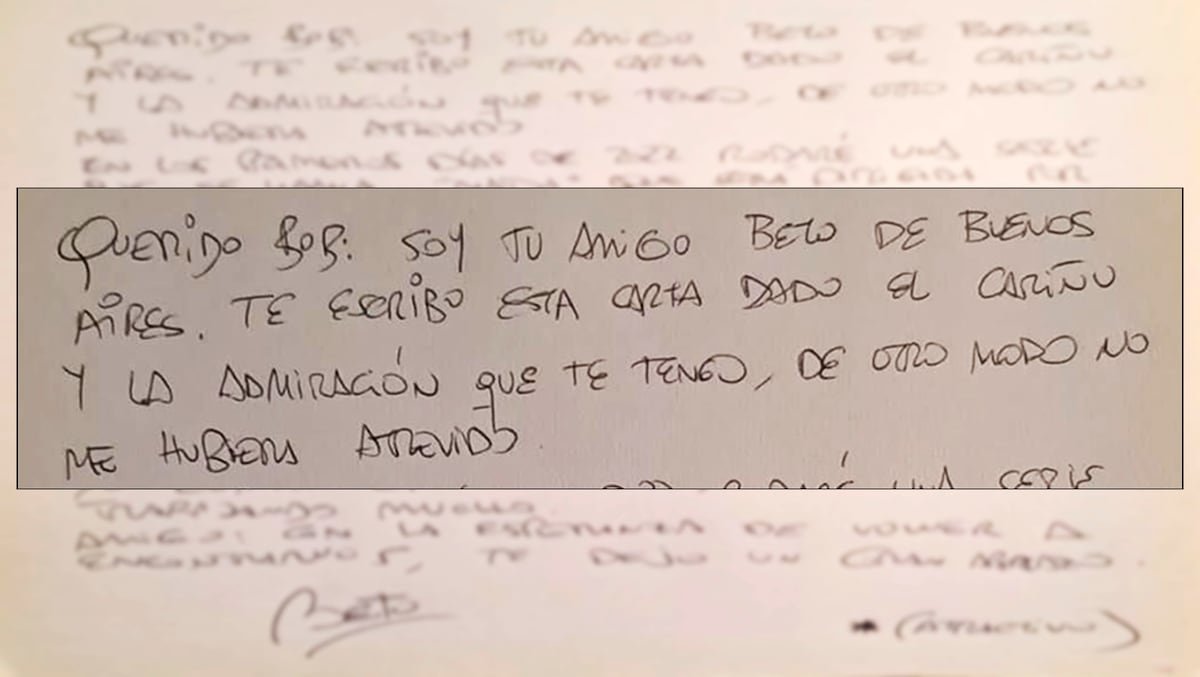 QUERIDO BOB: SOY TU AMIGO BETO DE BUENOS
AIRES. TE ESCRIBO ESTA CARTA DADO EL CARIÑO
Y LA ADMIRACIÓN QUE TE TENGO, DE OTRO MODO NO
ME HUBIERA ATREVIDO
EN LOS PRIMEROS DÍAS DE 2022 RODARÉ UNA SERIE
QUERIDO BOB: SOY TU AMIGO BETO DE BUENOS
AIRES. TE ESCRIBO ESTA CARTA DADO EL CARIÑO
Y LA ADMIRACIÓN QUE TE TENGO, DE OTRO MODO NO
ME HUBIERA ATREVIDO.
UNA SERIE
TRABAJANDO MUCHO.
AMIGO: EN LA ESPERANZA DE VOLVER A
ENCONTRARNOS, TE DEJO UN GRAN ABRAZO.
Beto